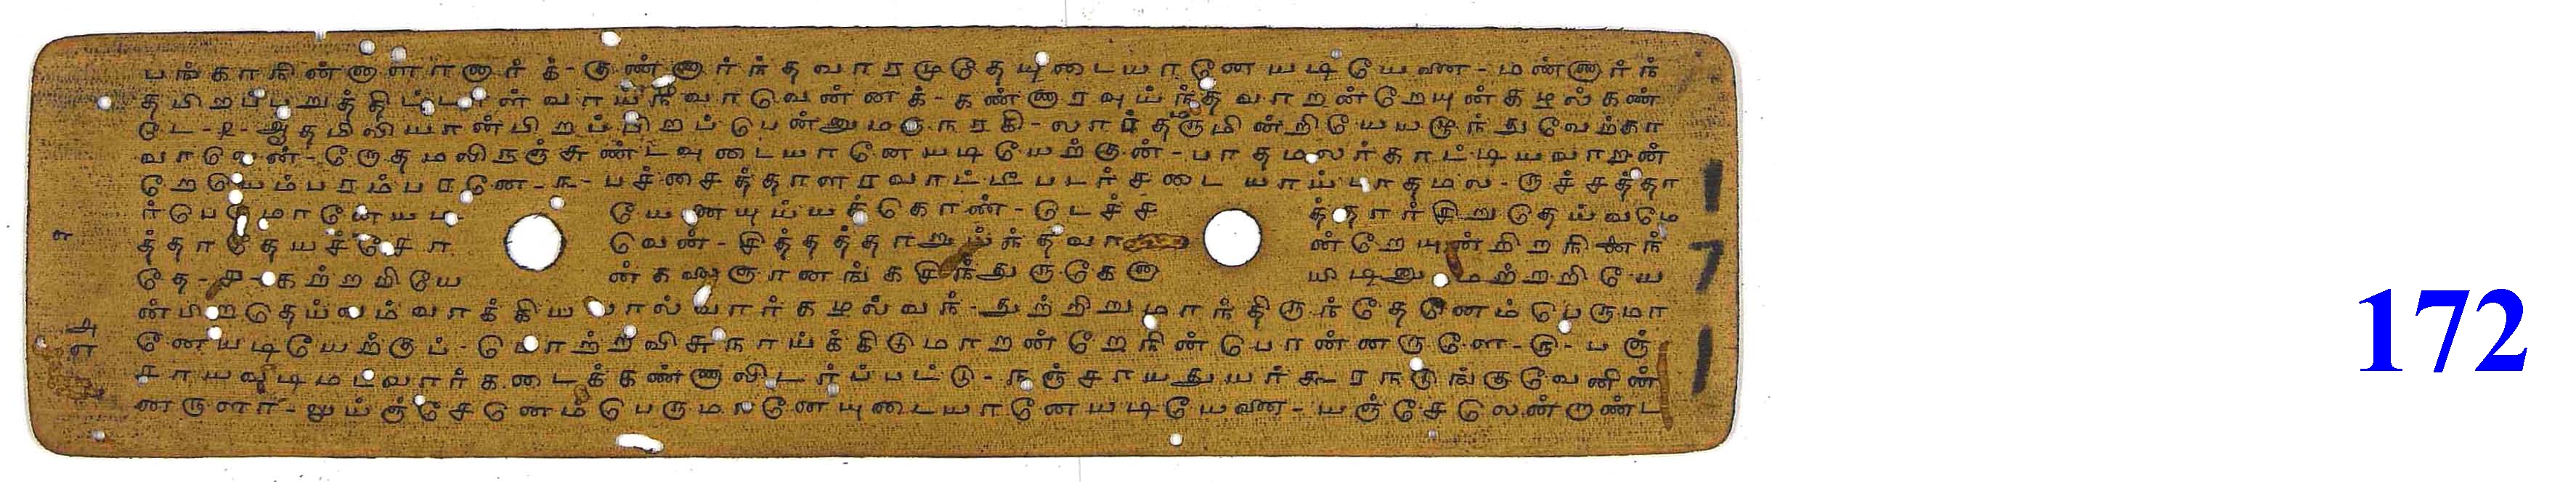 பங்காநின்னாளானார்க்-குண்ணார்ந்தவாரமுதேயுடையானேயடியேனை-மண்ணார்ந்
தபிறப்பறுத்திட்டாள்வாய்நீவாவென்னக்-கண்ணாரவுய்ந்தவாறன்றேயுன்கழல்கண்
டே-௨-ஆதமிலியான்பிறப்பிறப்பென்னுமருநரகி-லார்தமருமின்றியேயழுந்துவேற்கா
வாவென்-றோதமலிநஞ்சுண்டவுடையானேயடியேற்குன்-பாதமலர்காட்டியவாறன்
றேயெம்பரம்பரனே-௩-பச்சைத்தாளரவாட்டீபடர்சடையாய்பாதமல-ருச்சத்தா
ர்பெருமானேயடி யேனையுய்யக்கொண்-டெச்ச த்தார்சிறுதெய்வமே
த்தாதேயச்சோ வென்-சித்தத்தாறுய்ந்தவாற ன்றேயுன்றிறநினைந்
தே-௪-கற்றறியே ன்கலைஞானங்கசிந்துருகேனா யிடினுமற்றறியே
ன்பிறதெய்வம்வாக்கியலால்வார்கழல்வந்-துற்றிறுமாந்திருந்தேனெம்பெருமா
னேயடியேற்குப்-பொற்றவிசுநாய்க்கிடுமாறன்றேநின்பொன்னருளே-௫-பஞ்
சாயவடிமடவார்கடைக்கண்ணாலிடர்ப்பட்டு-நஞ்சாயதுயர்கூ-ரநடுங்குவேனின்
னருளா-லுய்ஞ்சேனெம்பெருமானேயுடையானேயடியேனை-யஞ்சேலென்றாண்ட
171
172